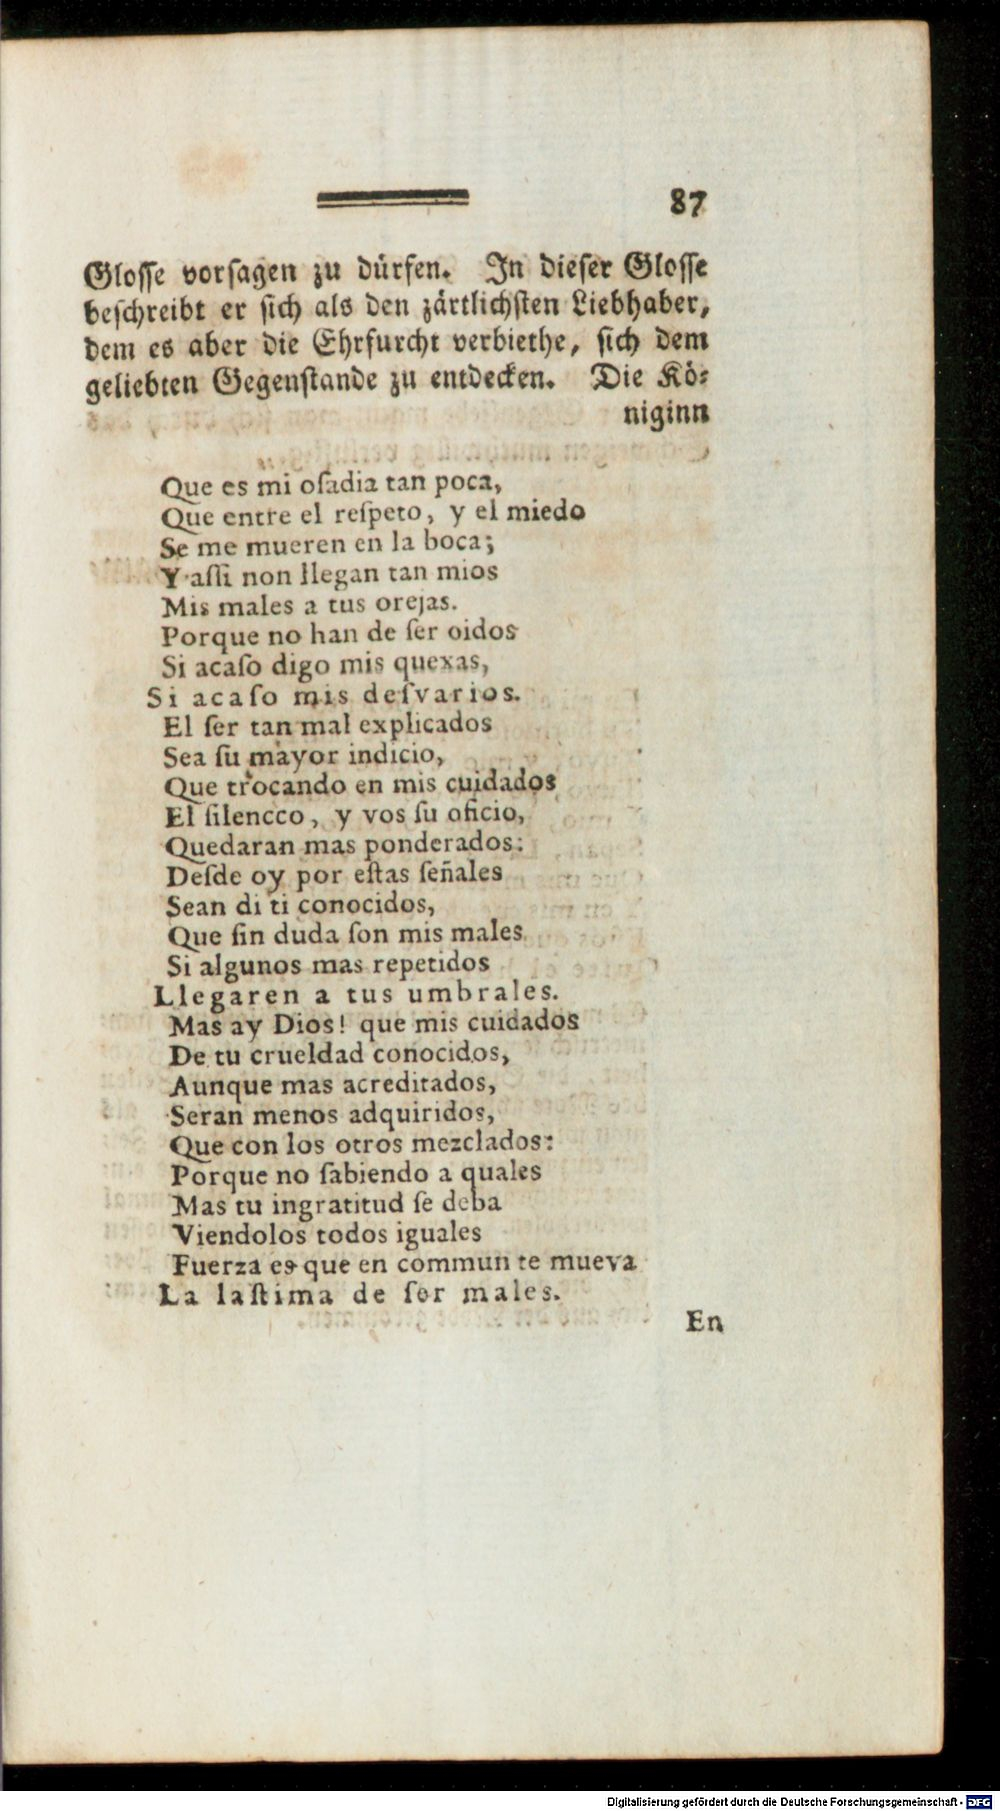 87
Gloſſe vorſagen zu dürfen. In dieſer Gloſſe
beſchreibt er ſich als den zärtlichſten Liebhaber,
dem es aber die Ehrfurcht verbiethe, ſich dem
geliebten Gegenſtande zu entdecken. Die Kö-
niginn
Que es mi oſadia tan poca,
Que entre el reſpeto, y el miedo
Se me mueren en la boca;
Y aſſi non llegan tan mios
Mis males a tus orejas.
Porque no han de ſer oidos
Si acaſo digo mis quexas,
Si acaſo mis deſvarios.
El ſer tan mal explicados
Sea ſu mayor indicio,
Que trocando en mis cuidados
El ſilencco, y vos ſu oficio,
Quedaran mas ponderados:
Deſde oy por eſtas ſeñales
Sean di ti conocidos,
Que ſin duda ſon mis males
Si algunos mas repetidos
Llegaren a tus umbrales.
Mas ay Dios! que mis cuidados
De tu crueldad conocidos,
Aunque mas acreditados,
Seran menos adquiridos,
Que con los otros mezclados:
Porque no ſabiendo a quales
Mas tu ingratitud ſe deba
Viendolos todos iguales
Fuerza es que en commun te mueva
La laſtima de ſer males.
En
Digitalisierung gefördert durch die Deutsche Forschungsgemeinschaft - DFG